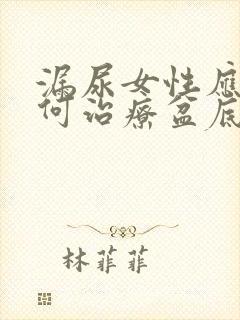 漏尿女性應
何治療盆底
林菲菲